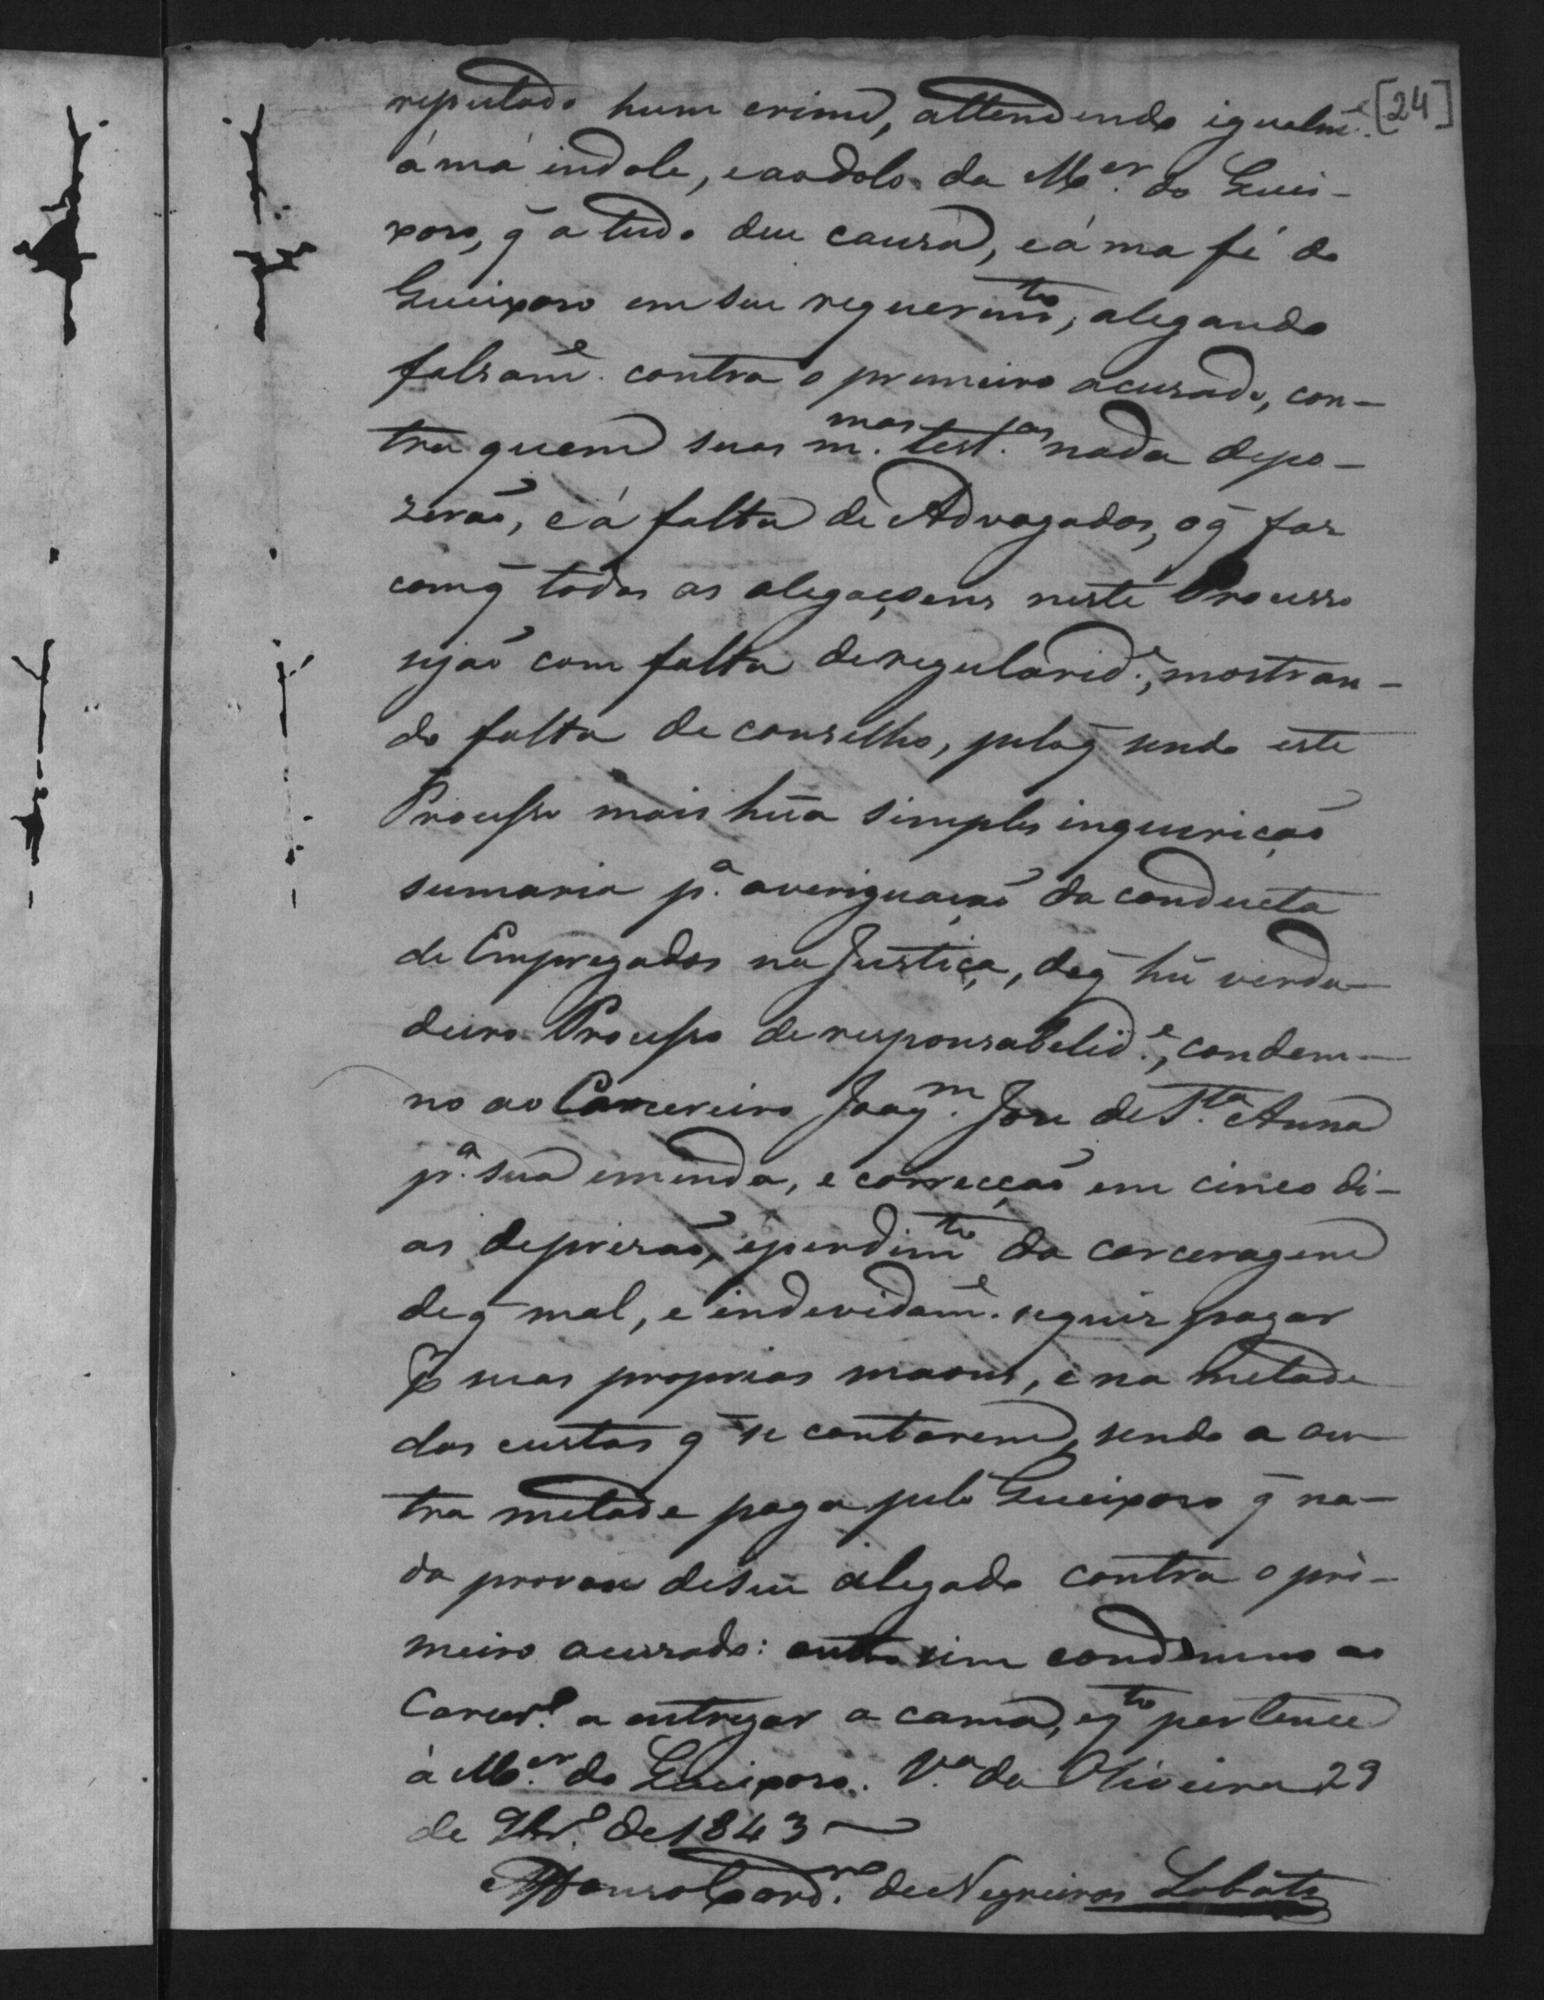 reputado hum crime, attendendo igualmᵉ. [24]
á má indole, e ao dolo da Mᵉʳ. do Quei-
xoso, q̃ a tudo deu causa, e á ma fé do
Queixoso em seu requerimᵗᵒ, alegando
falsamᵉ. contra o primeiro acusado, con-
tra quem suas m.ᵐᵃˢ test.ᵃˢ nada depo-
zerão, e á falta de Advogados, o q̃ faz
com q̃ todas as alegaçoens neste Processo
sejão com falta de regularidᵉ., mostran-
do falta de conselho, pelo q̃ sendo este
Processo mais hũa simples inquirição
sumaria pᵃ. averiguação da conducta
de Empregados na Justiça, de q̃ hũ verda-
deiro Processo de responsabelidᵉ., condem-
no ao Carcereiro Joaqᵐ. Joze de Sᵗᵃ. Anna
pᵃ. sua emenda, e correcção em cinco di-
as de prizão, e perdimᵗᵒ da carceragem
de q̃ mal, e indevidamᵉ. se quiz pagar
p̃ suas proprias maons, e na metade
das custas q̃ se contarem, sendo a ou-
tra metade paga pelo Queixoso q̃ na-
da provou de seu alegado contra o pri-
meiro acuzado: outro sim condemno ao
Carcerº. a entregar a cama, e qᵗᵒ pertence
á Mᵉʳ. do Queixoso. Vᵃ. da Oliveira 29
de 9brº. de 1843
Affonso Cordʳᵒ. de Negreiros Lobato